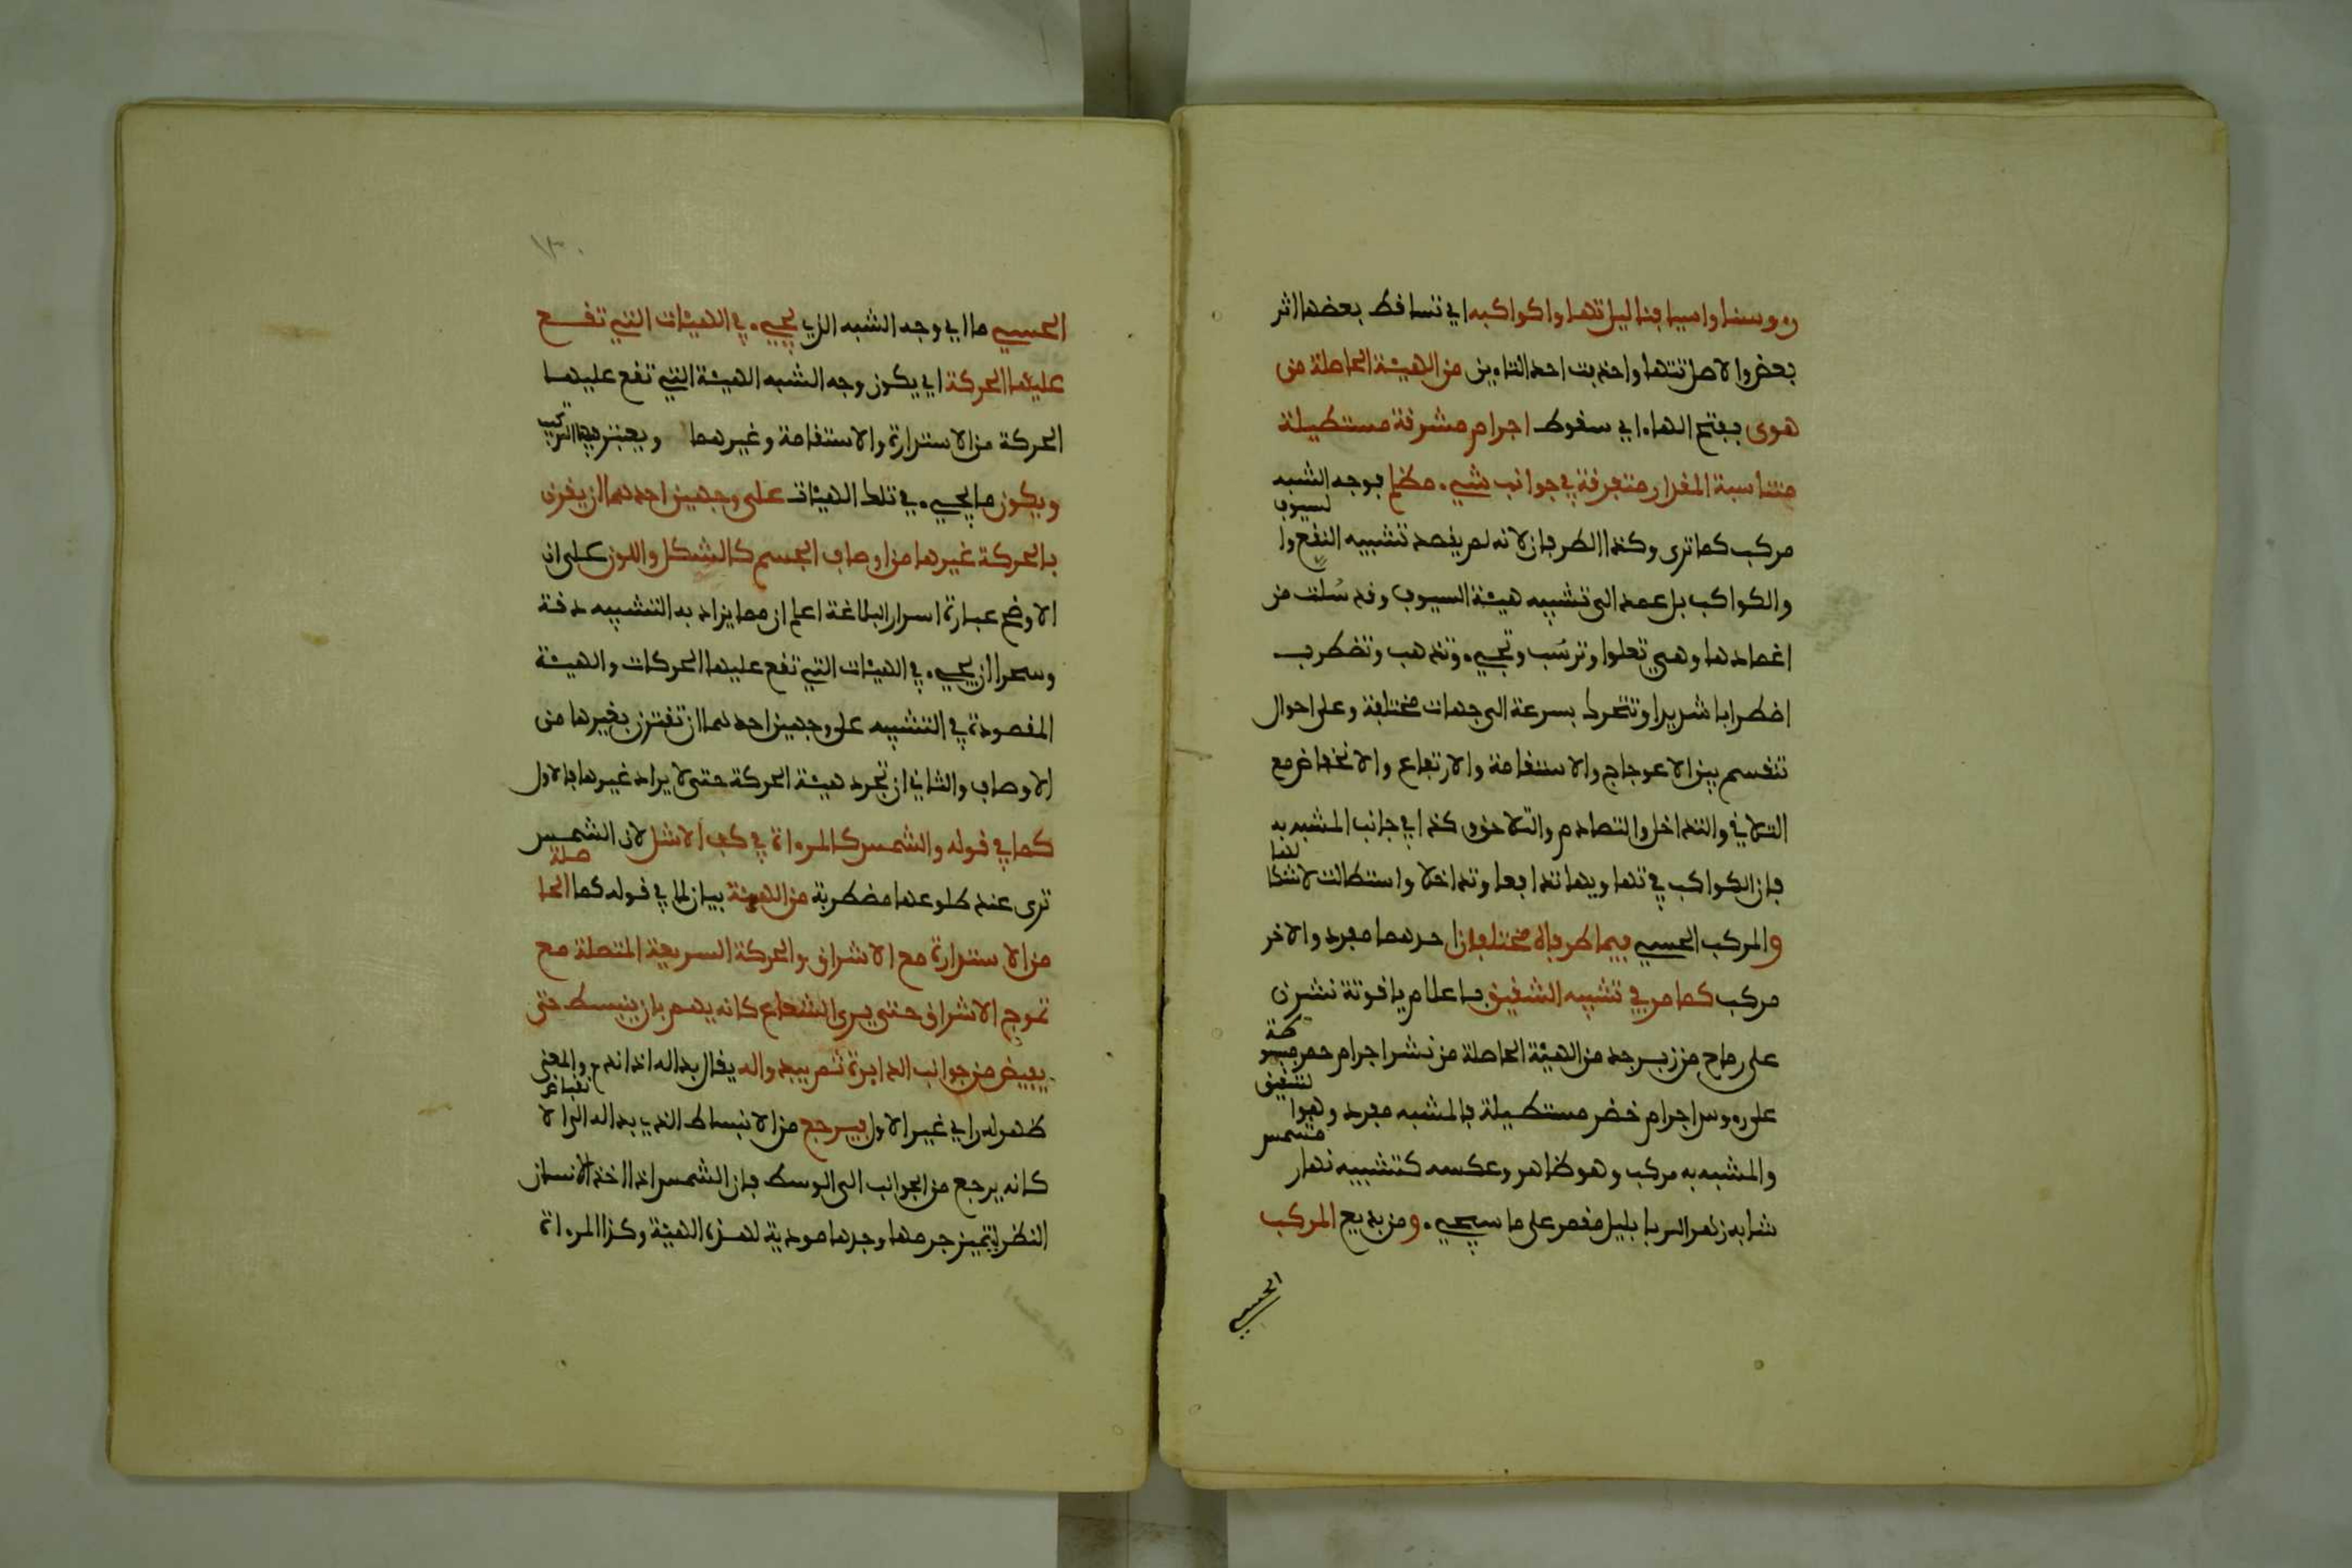 رءوسنا واسيافنا ليل تهاوا كواكبه اي تساقط بعضها اثر
بعض والاصل تتهاوا حذبت احد التاءين من الهيئة الحاصلة من
هوى بفتح الهاء اي سقوط اجرام مشرقة مستطيلة
متناسبة المقدار متفرقة في جوانب شيء مظلم فوجه الشبه
مركب كما ترى وكذا الطرفان لانه لم يقصد تشبيه النقع والسيوف
والكواكب بل عمد الى تشبيه هيئة السيوف وقد سُلّت من
اغمادها وهي تعلوا وترسُب وتجيء وتذهب وتضطرب
اضطرابا شديدا وتتحرك بسرعة الى جهات مختلفة وعلى احوال
تنقسم بين الاعوجاج والاستقامة والارتفاع والانخفاض مع
التلاقي والتداخل والتصادم والتلاحق وكذا في جانب المشبه به
فان للكواكب في تهاويها تدافعا وتداخلا واستطالت لاشكالها
والمركب الحسي فيما طرفاه مختلفان احدهما مفرد والاخر
مركب كما مر في تشبيه الشقيق باعلام ياقوتة نشرن
على رماح من زبرجد من الهيئة الحاصلة من نشر اجرام حمر مبسوطة
على رءوس اجرام خضر مستطيلة فالمشبه مفرد وهو الشقيق
والمشبه به مركب وهو ظاهر وعكسه كتشبيه نهار مشمس
شابه زهر الربا بليل مقمر على ما سيجيء ومن بديع المركب
الحسي
١٣٠
الحسي ما اي وجه الشبه الذي يجيء في الهيئات التي تقع
عليها الحركة اي يكون وجه الشبه الهيئة التي تقع عليها
الحركة من الاستدارة والاستقامة وغيرهما ويعتبر فيها التركيب
ويكون ما يجيء في تلك الهيئات على وجهين احدهما ان يقرن
بالحركة غيرها من اوصاف الجسم كالشكل واللون على ان
الاوضح عبارة اسرار البلاغة اعلم ان مما يزاد به التشبيه دقة
وسحرا ان يجيء في الهيئات التي تقع عليها الحركات والهيئة
المقصودة في التشبيه على وجهين احدهما ان تقترن بغيرها من
الاوصاف والثاني ان تجرد هيئة الحركة حتى لا يراد غيرها فالاول
كما في قوله والشمس كالمرءاة في كف الاشل لان الشمس
ترى عند طلوعها مضطربة من الهيئة بيان لما في قوله كما الحاصلة
من الاستدارة مع الاشراق والحركة السريعة المتصلة مع
تموج الاشراق حتى يرى الشعاع كانه يهم بان ينبسط حتى
يفيض من جوانب الدايرة ثم يبدو له يقال بدا له اذا ندم والمعنى
ظهر له راي غير الاول فيرجع من الانبساط الذي بدا له الى الانقباض
كانه يرجع من الجوانب الى الوسط فان الشمس اذا احد الانسان
النظر ليتميز جرمها وجدها مودية لهذه الهيئة وكذا المرءاة